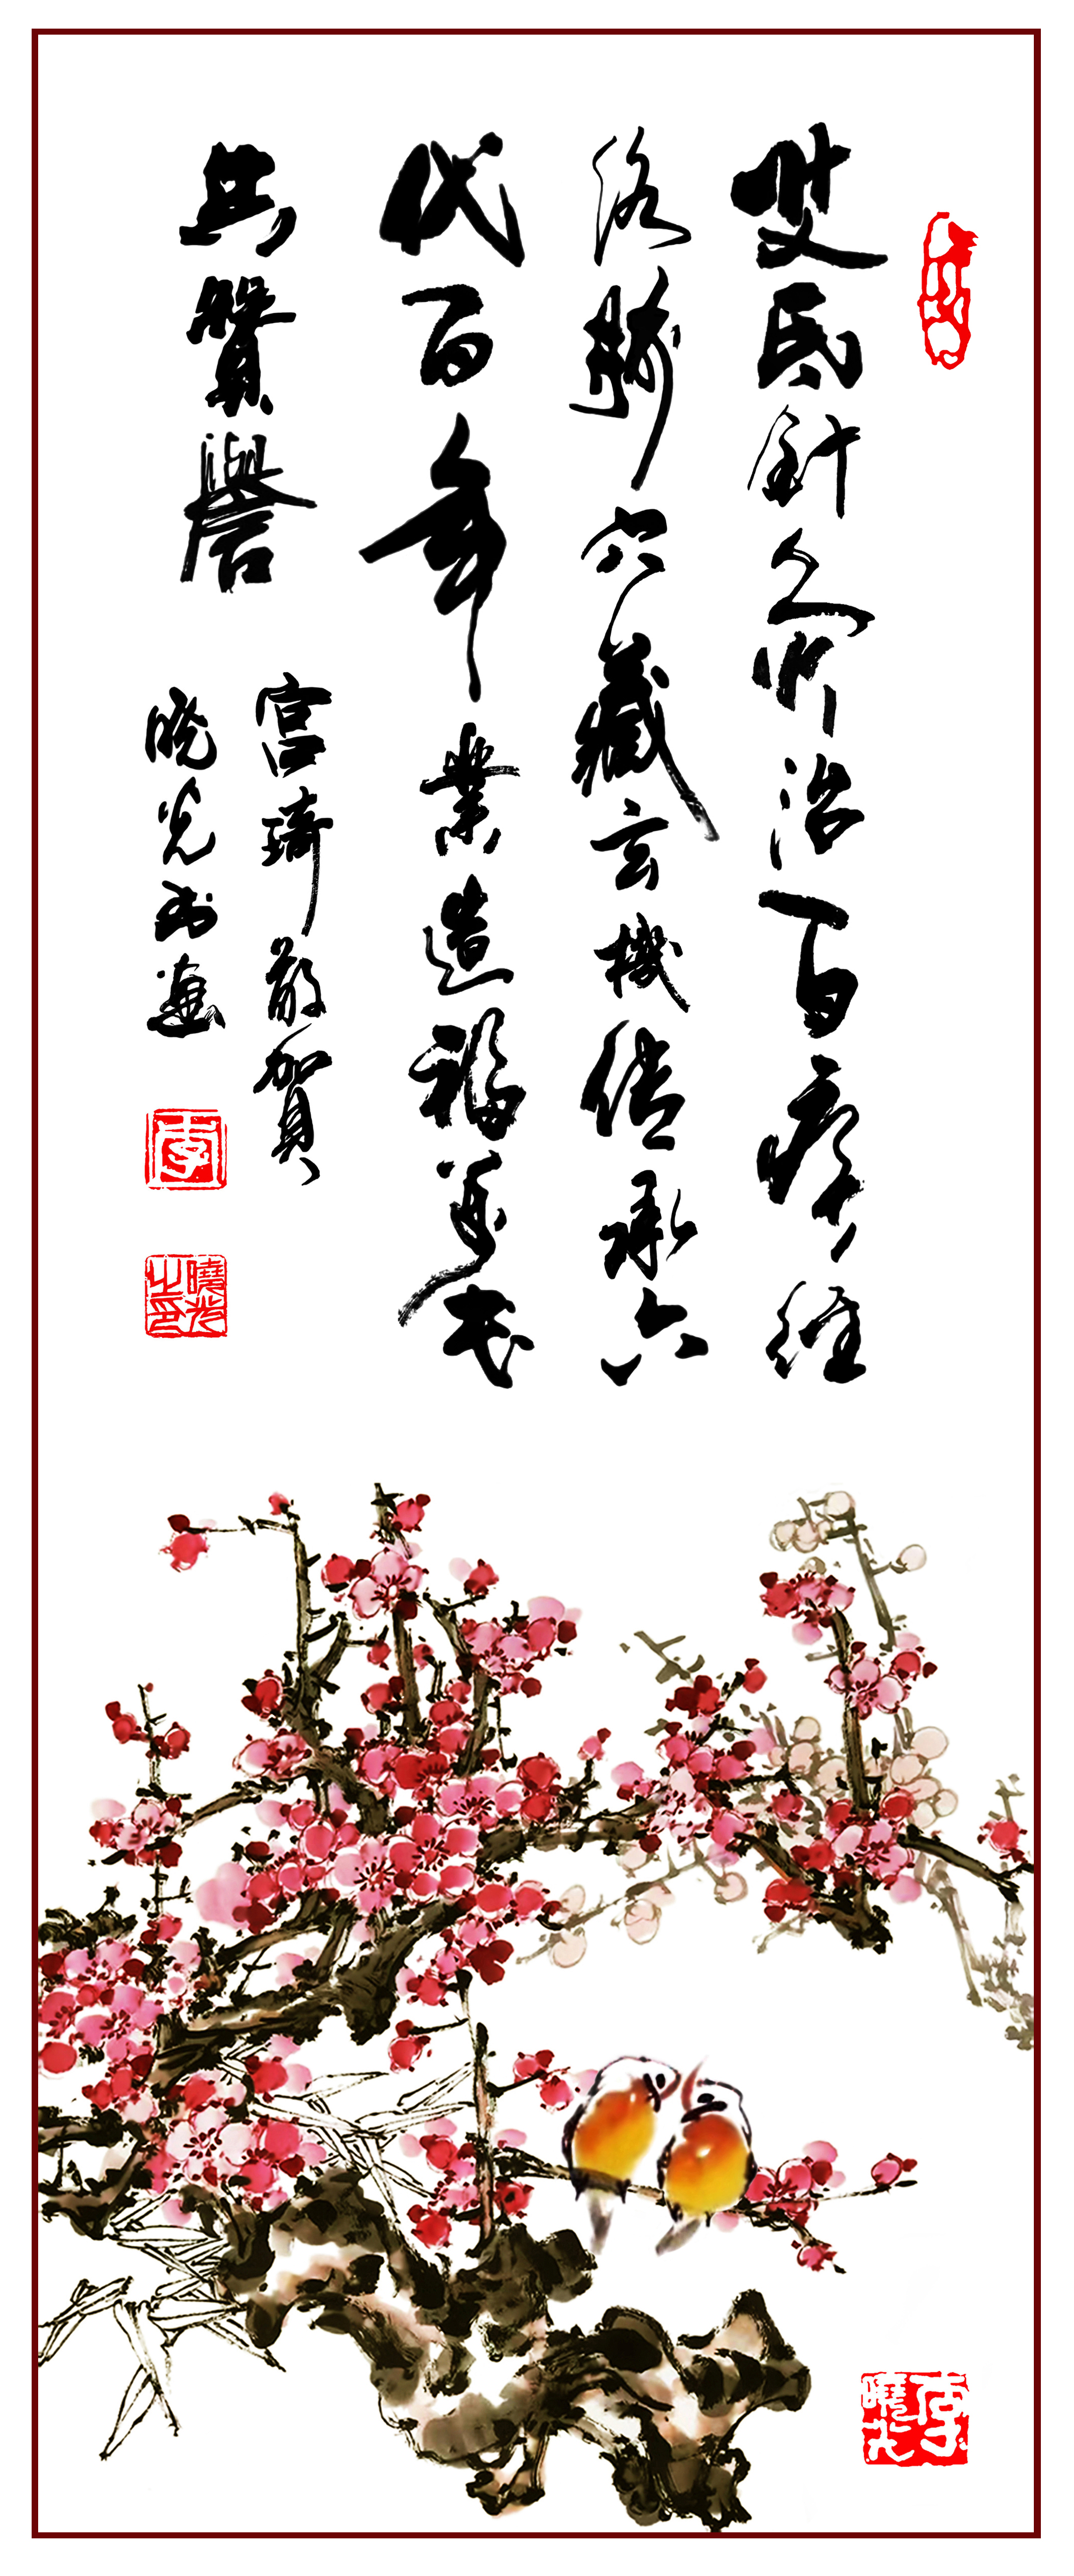 民針灸治百疾經
絡騎穴藏玄機傳承六
代百年業造福萬民
共贊譽
宮琦敬賀
曉光书畫
李
曉光之印
李曉光